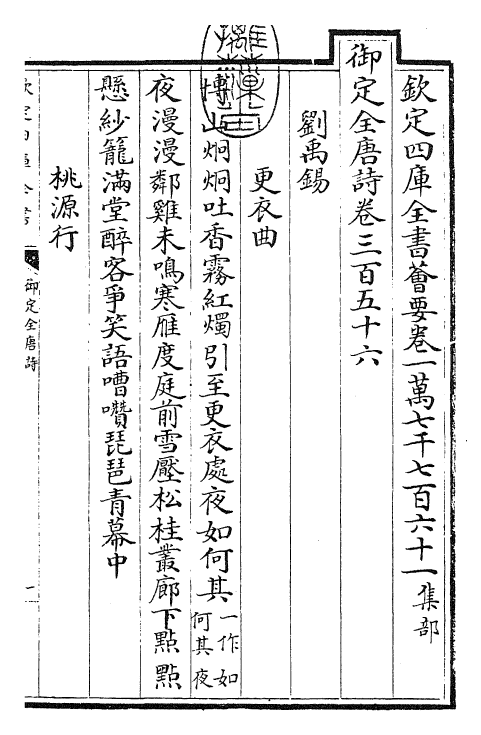 欽定四庫全書薈要卷一萬七千七百六十一集部
御定全唐詩卷三百五十六
劉禹錫
更衣曲
博山炯炯吐香霧紅燭引至更衣處夜如何其一作如何其夜
夜漫漫鄰雞未鳴寒雁度庭前雪壓松桂叢廊下點點
懸紗籠滿堂醉客爭笑語嘈囋琵琶青幕中
桃源行
御定全唐詩
一